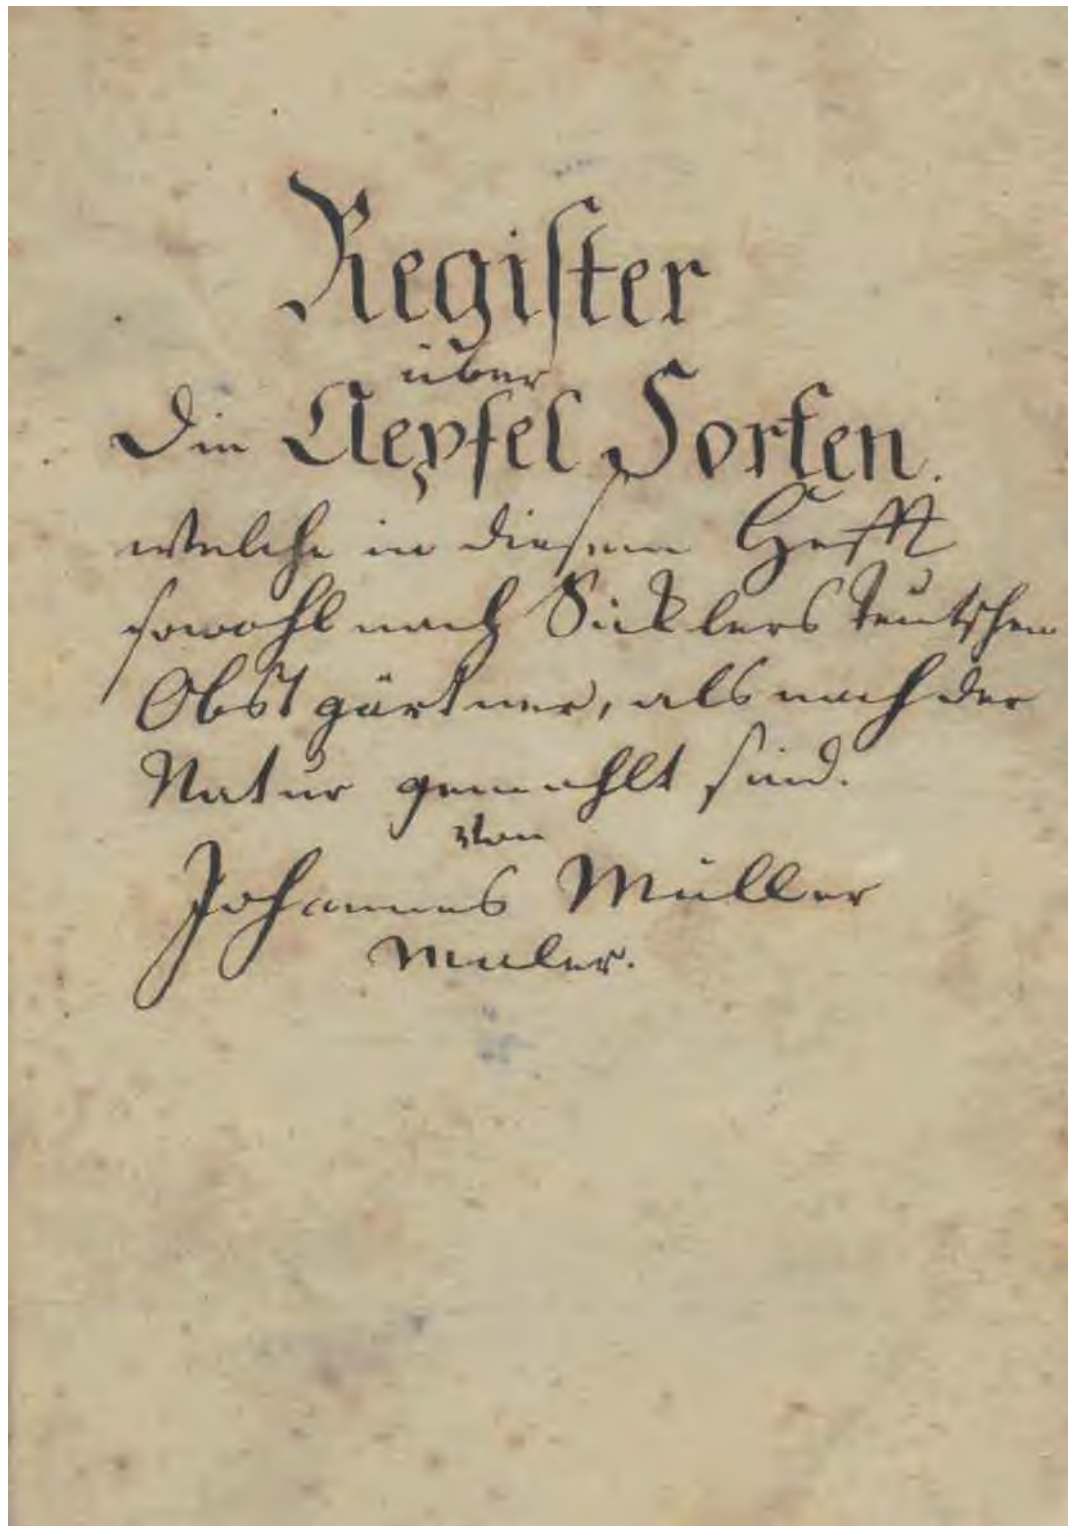 Register
über
Die Aepfel Sorten.
welche in diesem Hefft
sowohl nach Sicklers teutschen
Obstgärtner, als nach der
Natur gemahlt sind.
von
Johannes Müller
Maler.